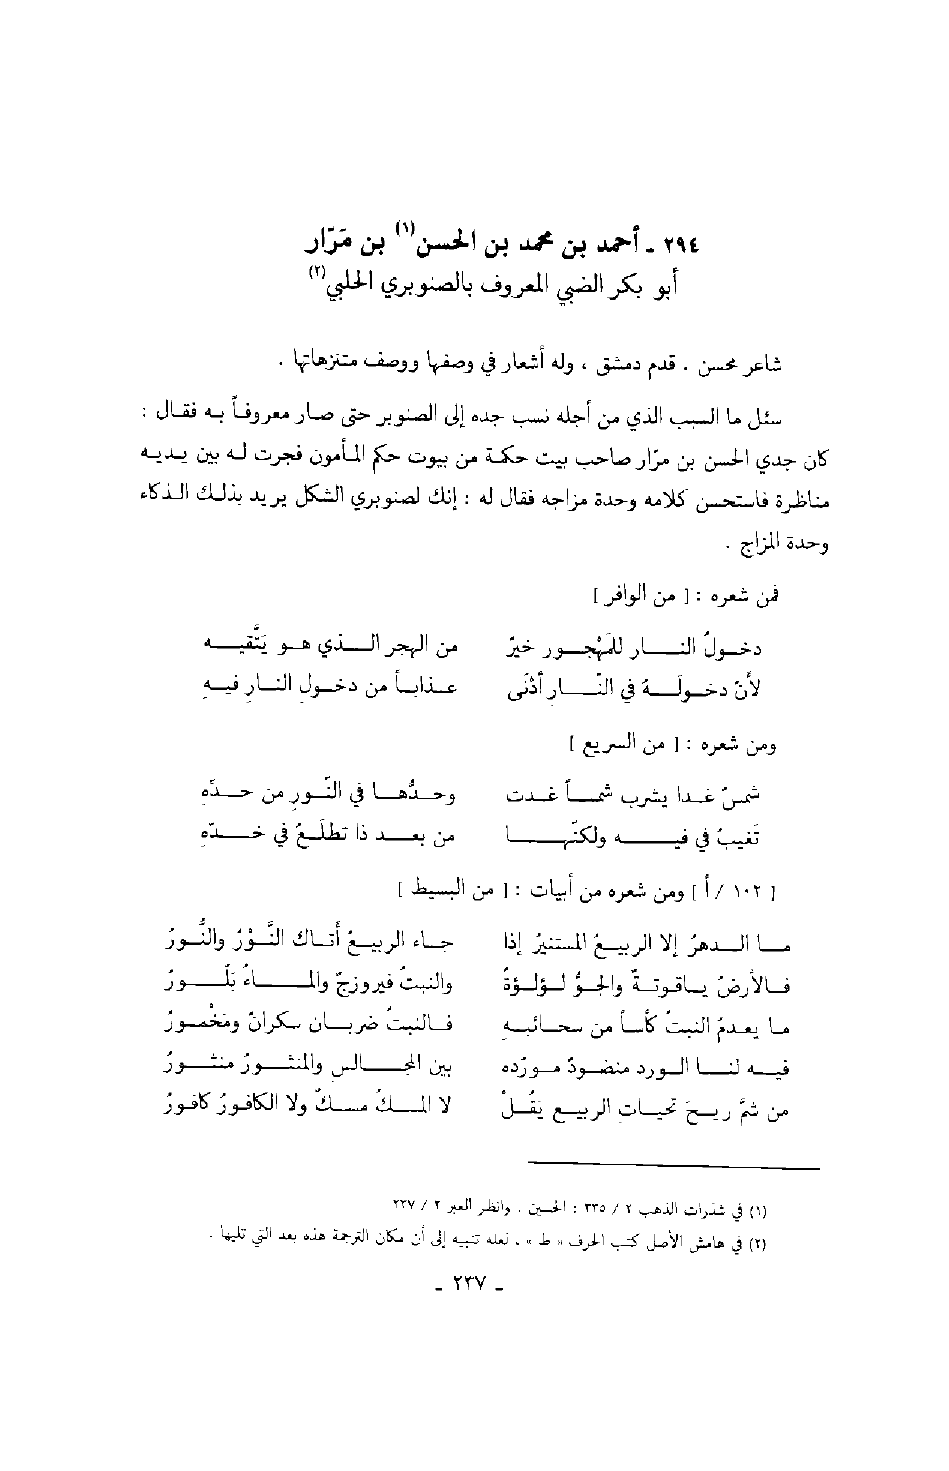 ٢٩٤ ـ أحمد بن محمد بن الحسن(١) بن مَرّار
أبو بكر الضبي المعروف بالصنوبري الحلبي(٢)
شاعر محسن . قدم دمشق ، وله أشعار في وصفها ووصف متنزهاتها .
سئل ما السبب الذي من أجله نسب جده إلى الصنوبر حتى صار معروفاً به فقال :
كان جدي الحسن بن مرّار صاحب بيت حكمة من بيوت حكم المأمون فجرت له بين يديه
مناظرة فاستحسن كلامه وحدة مزاجه فقال له : إنك لصنوبري الشكل يريد بذلك الذكاء
وحدة المزاج .
فمن شعره : [ من الوافر ]
دخولُ النار للمَهْجور خيرٌ من الهجر الذي هو يَتَّقيه
لأنّ دخولَهُ في النّار أدْنَى عذاباً من دخول النارِ فيهِ
ومن شعره : [ من السريع ]
شمسٌ غدا يشرب شمساً غدت وحدُّها في النّورِ من حدّهِ
تَغيبُ في فيه ولكنّها من بعد ذا تطلُعُ في خدّهِ
[ ١٠٢ / أ ] ومن شعره من أبيات : [ من البسيط ]
ما الدهرُ إلا الربيعُ المستنيرُ إذا جاء الربيعُ أتاك النَّوْرُ والنُّورُ
فالأرضُ ياقوتةٌ والجوُّ لؤلؤةٌ والنبتُ فيروزجٌ والماءُ بلّورُ
ما يعدمُ النبتُ كأساً من سحائبهِ فالنبتُ ضربان سكرانٌ ومَخْمورُ
فيه لنا الورد منضودٌ مورّده بين المجالسِ والمنثورُ منثورُ
من شمَّ ريحَ تحياتِ الربيع يَقُلْ لا المسكُ مسكٌ ولا الكافورُ كافورُ
(١) في شذرات الذهب ٢ / ٣٣٥ : الحسين . وانظر العبر ٢ / ٢٣٧
(٢) في هامش الأصل كتب الحرف « ط » ، لعله تنبيه إلى أن مكان الترجمة هذه بعد التي تليها .
ـ ٢٣٧ ـ